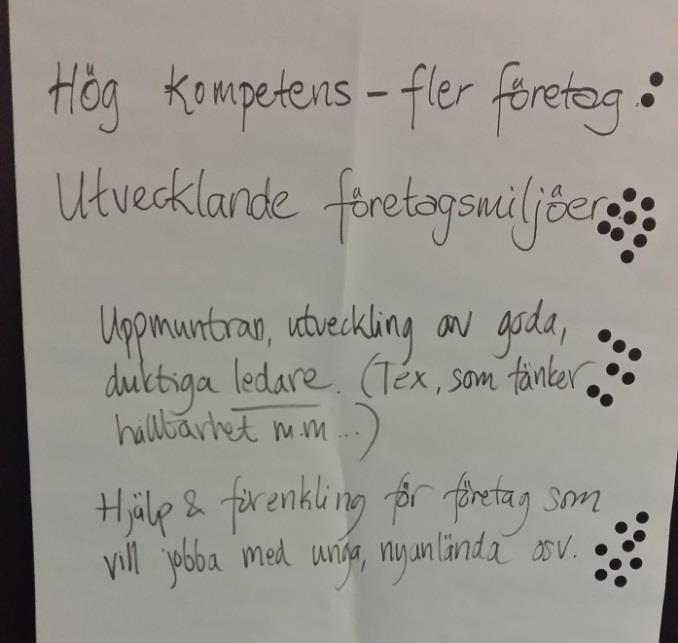 Hög kompetens – fler företag.
Utvecklande företagsmiljöer
Uppmuntran, utveckling av goda,
duktiga ledare. (Tex, som tänker
hållbarhet m.m...)
Hjälp & förenkling för företag som
vill jobba med unga, nyanlända osv.